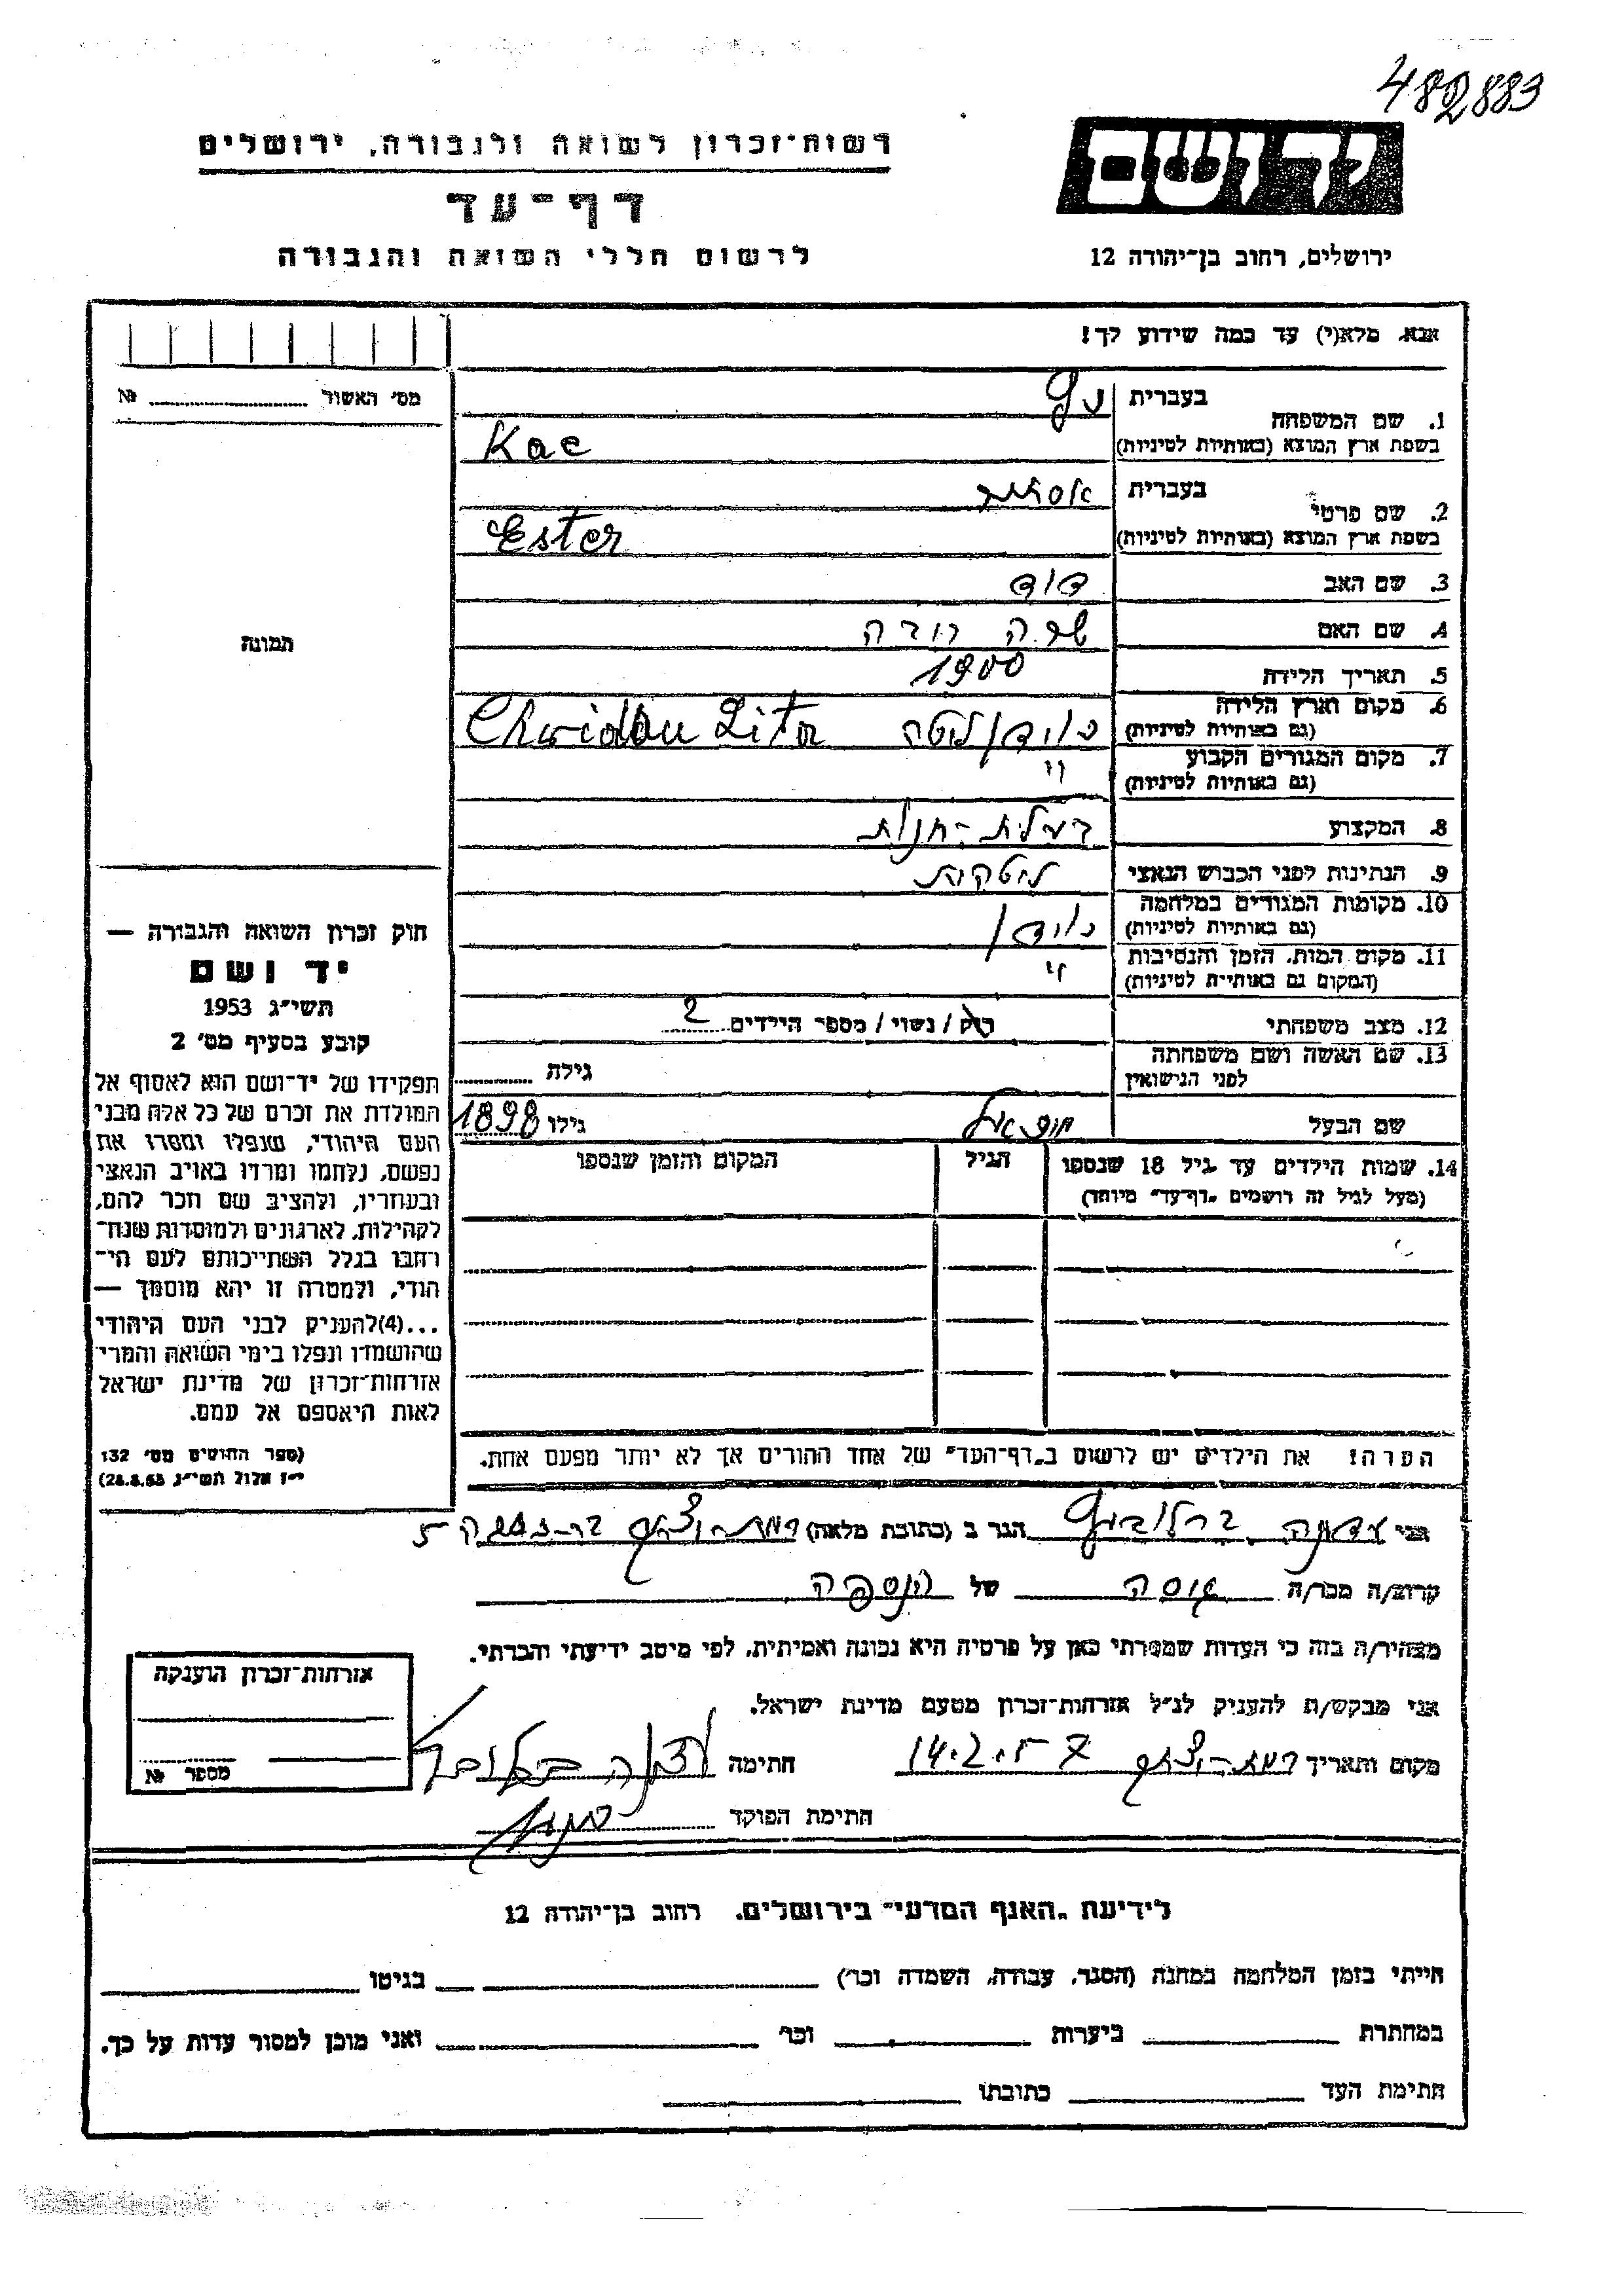 482883
רשות־זכרון לשואה ולגבורה, ירושלים
יד ושם
דף־עד
לרשום חללי השואה והגבורה
ירושלים, רחוב בן־יהודה 12
אנא, מלא(י) עד כמה שידוע לך!
מס' האשור № 
תמונה
1. שם המשפחה
בעברית כץ
בשפת ארץ המוצא (באותיות לטיניות) Kac
2. שם פרטי
בעברית אסתר
בשפת ארץ המוצא (באותיות לטיניות) Ester
3. שם האב דוד
4. שם האם שרה
5. תאריך הלידה 1900
6. מקום וארץ הלידה
(גם באותיות לטיניות) ליטה Lita
7. מקום המגורים הקבוע
(גם באותיות לטיניות) "
8. המקצוע בעלת-חנות
9. הנתינות לפני הכבוש הנאצי ליטאית
10. מקומות המגורים במלחמה
(גם באותיות לטיניות)
11. מקום המות, הזמן והנסיבות
(המקום גם באותיית לטיניות) "
12. מצב משפחתי רווק / נשוי / מספר הילדים 2
13. שם האשה ושם משפחתה
לפני הנישואין גילה
שם הבעל גילו 1898
14. שמות הילדים עד גיל 18 שנספו
(מעל לגיל זה רושמים "דף־עד" מיוחד)
הגיל
המקום והזמן שנספו
הערה! את הילדים יש לרשום ב"דף־העד" של אחד ההורים אך לא יותר מפעם אחת.
חוק זכרון השואה והגבורה —
יד ושם
תשי"ג 1953
קובע בסעיף מס' 2
תפקידו של יד־ושם הוא לאסוף אל
המולדת את זכרם של כל אלה מבני
העם היהודי, שנפלו ומסרו את
נפשם, נלחמו ומרדו באויב הנאצי
ובעוזריו, ולהציב שם וזכר להם,
לקהילות, לארגונים ולמוסדות שנח־
רחבו בגלל השתייכותם לעם הי־
הודי, ולמטרה זו יהא מוסמך —
...(4)להעניק לבני העם היהודי
שהושמדו ונפלו בימי השואה והמרי
אזרחות־זכרון של מדינת ישראל
לאות היאספם אל עמם.
(ספר החוקים מס' 132
י"ז אלול תשי"ג, 28.8.53)
אני הגר ב (כתובת מלאה) 5
קרוב/ה מכר/ה גיסה של הנספה
מצהיר/ה בזה כי העדות שמסרתי כאן על פרטיה היא נכונה ואמיתית, לפי מיטב ידיעתי והכרתי.
אני מבקש/ת להעניק לנ"ל אזרחות־זכרון מטעם מדינת ישראל.
מקום ותאריך 14.2.57 חתימה
חתימת הפוקד
אזרחות־זכרון הוענקה
מספר №
לידיעת "האגף המדעי" בירושלים, רחוב בן־יהודה 12
הייתי בזמן המלחמה במחנה (הסגר, עבודה, השמדה וכו') בגיטו
במחתרת ביערות וכו' ואני מוכן למסור עדות על כך.
חתימת העד כתובתו